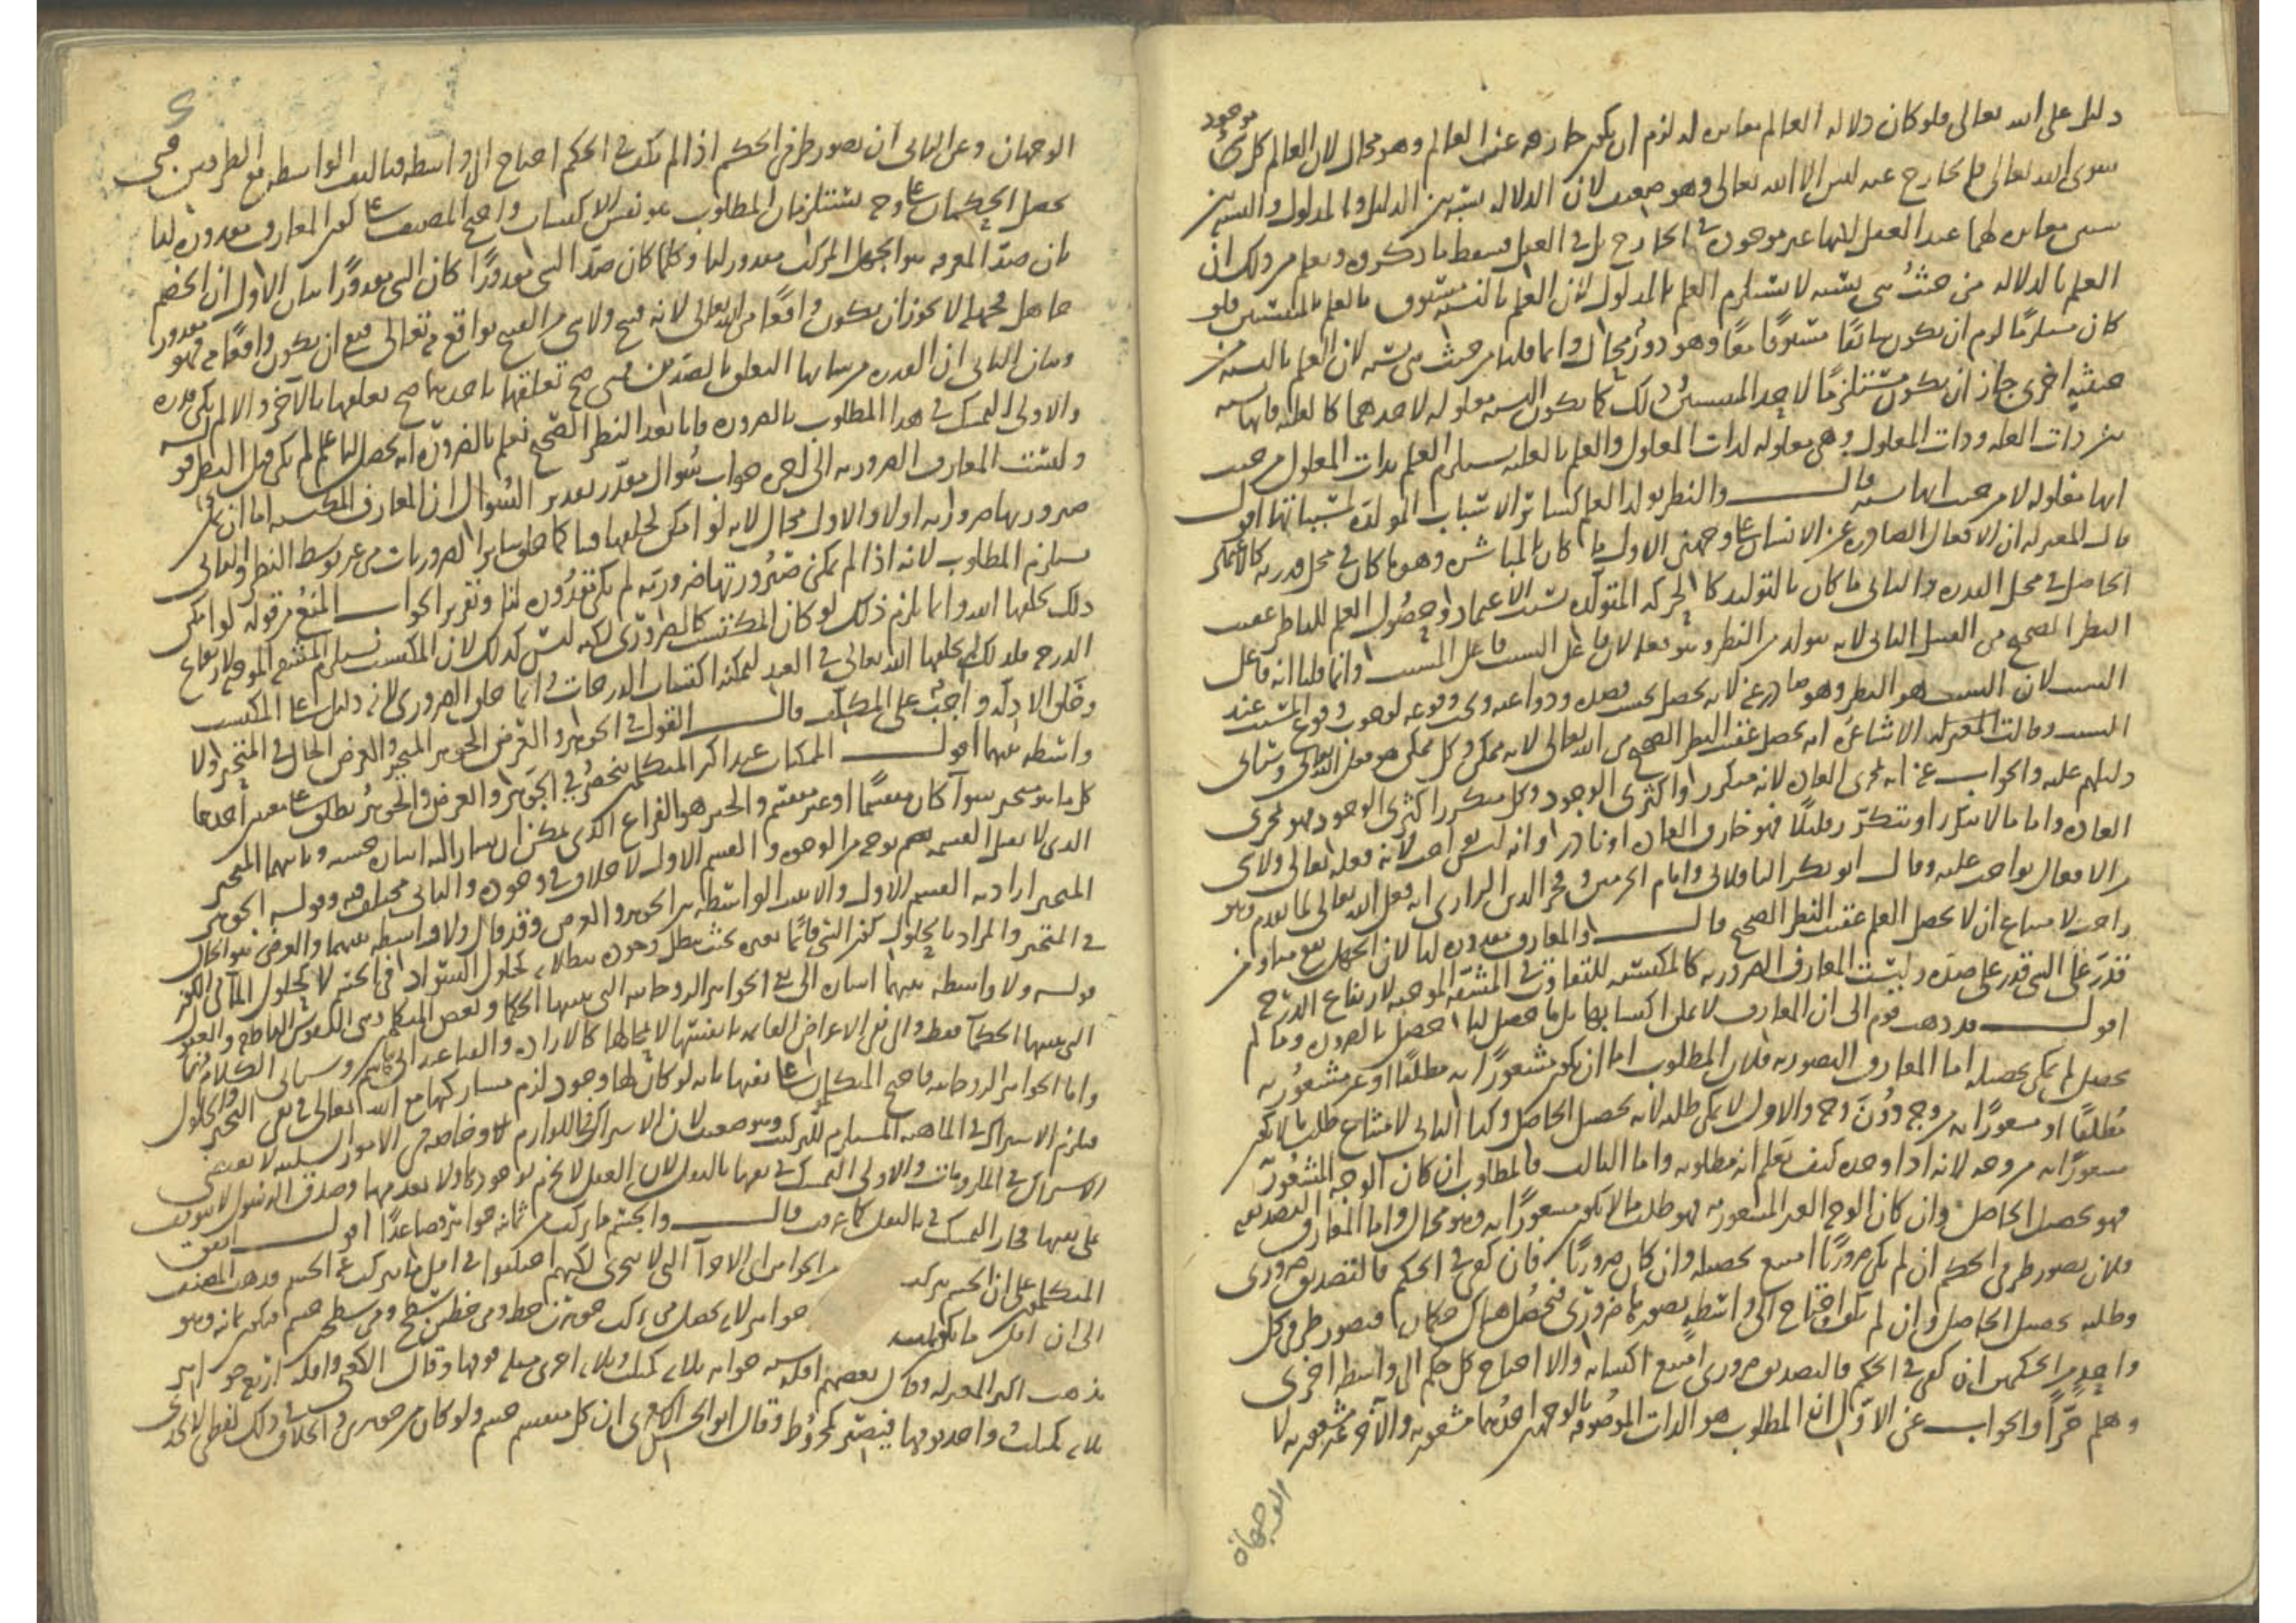 دليل على الله تعالى فلو كان دلاله العالم مغايره له لزم ان يكون خارجه عن العالم وهو محال لان العالم كل موجود
سوى الله تعالى فالخارج عنه ليس الا الله تعالى وهو ضعيف لان الدلاله نسبة بين الدليل والمدلول والنسبه بين
شيئين مغايره لهما عند العقل لانها غير موجوده في الخارج بل في العقل فسقط ما ذكروه ويعلم من ذلك ان
العلم بالدلاله من حيث هي نسبه لا يستلزم العلم بالمدلول لان العلم بالنسبه مسبوق بالعلم بالمنتسبين فلو
كان مستلزما لزم ان يكون سابقا مسبوقا معا وهو دور محال وانما قلنا من حيث هي نسبه لان العلم بالنسبه من
حيثيه اخرى جاز ان يكون مستلزما لاحد المنتسبين وذلك كما يكون النسبه معلوله لاحدهما كالعليه فانها نسبه
بين ذات العله وذات المعلول وهي معلوله لذات المعلول والعلم بالعليه يستلزم العلم بذات المعلول من حيث
انها معلوله لا من حيث انها نسبه قال والنظر يولد العلم كسائر الاسباب المولده لمسبباتها اقول
قالت المعتزله ان الافعال الصادره عن الانسان على وجهين الاول ما كان بالمباشره وهو ما كان في محل قدرته كالفكر
الحاصل في محل القدره والثاني ما كان بالتوليد كالحركه المتولده بسبب الاعتماد وحصول العلم للناظر عقيب
النظر الصحيح من القسم الثاني لانه يتولد من النظر وهو فعله لان فاعل السبب فاعل المسبب وانما قلنا انه فاعل
السبب لان السبب هو النظر وهو صادر عنه لانه يحصل بحسب قصده ودواعيه ويجب وقوعه لوجوب وقوع المسبب عند
السبب وقالت الاشاعره انه يحصل عقيب النظر الصحيح من الله تعالى لانه ممكن وكل ممكن هو فعل الله تعالى وسياتي
دليلهم عليه والجواب عنه انه مجرى العاده لانه متكرر اكثري الوجود وكل متكرر اكثري الوجود فهو مجرى
العاده واما ما لا يتكرر او يتكرر قليلا فهو خارق العاده او نادر وانه ليس بواجب لانه فعله تعالى ولا شي
من الافعال بواجب عليه وقال ابو بكر الباقلاني وامام الحرمين وفخر الدين الرازي انه فعل الله تعالى لما تقدم وهو
واجب لامتناع ان لا يحصل العلم عقيب النظر الصحيح قال والمعارف مقدوره لنا لان الجهل يقع منا ومن
قدر على الشي قدر على ضده وليست المعارف الضروريه كالمكتسبه للتفاوت في المشقه الموجبه لارتفاع الدرج
اقول قد ذهب قوم الى ان المعارف لا يمكن اكتسابها بل ما حصل لنا حصل بالضروره وما لم
يحصل لم يمكن تحصيله اما المعارف التصوريه فلان المطلوب اما ان يكون مشعورا به مطلقا او غير مشعور به
مطلقا او مشعورا به من وجه دون وجه والاول لا يمكن طلبه لانه تحصيل الحاصل وكذا الثاني لامتناع طلب ما لا يكون
مشعورا به من وجه لانه اذا وجده كيف يعلم انه مطلوبه واما الثالث فالمطلوب ان كان الوجه المشعور به
فهو تحصيل الحاصل وان كان الوجه الغير المشعور به فهو طلب ما لا يكون مشعورا به وهو محال واما المعارف التصديقيه
فلان تصور طرفي الحكم ان لم يكن ضروريا امتنع تحصيله وان كان ضروريا فان كفى في الحكم فالتصديق ضروري
وطلبه تحصيل الحاصل وان لم يكف احتاج الى واسطه تصوره ضروري فيحصل هناك حكمان فتصور طرفي كل
واحد من الحكمين ان كفى في الحكم فالتصديق ضروري امتنع اكتسابه والا احتاج كل حكم الى واسطه اخرى
وهلم جرا والجواب عن الاول ان المطلوب هو الذات الموصوفه بالوجهين احدهما مشعور به والاخر غير مشعور به لا
الوجهان
الوجهان وعن الثاني ان تصور طرفي الحكم اذا لم يكف في الحكم احتاج الى واسطه فتاليف الواسطه مع الطرفين
يحصل الحكمان على وجه يستلزمان المطلوب هو نفس الاكتساب واحتج المصنف على كون المعارف مقدوره لنا
بان ضد المعرفه هو الجهل المركب مقدور لنا وكلما كان ضد الشي مقدورا كان الشي مقدورا بيان الاول ان الخصم
جاهل فجهله لا يجوز ان يكون واقعا من الله تعالى لانه قبيح ولا شي من القبيح بواقع منه تعالى فتعين ان يكون واقعا منه فهو مقدور
وبيان الثاني ان القدره من شانها التعلق بالضدين فمتى صح تعلقها باحدهما صح تعلقها بالاخر والا لم تكن قدره
والاولى التمسك في هذا المطلوب بالضروره فانا بعد النظر الصحيح نعلم بالضروره انه يحصل لنا علم لم يكن قبل النظر قوله
وليست المعارف الضروريه الى اخره جواب سؤال مقدر تقدير السؤال ان المعارف المكتسبه اما ان يمكن
صيرورتها ضروريه اولا والاول محال لانه لو امكن لخلقها فينا كما خلق سائر الضروريات من غير توسط النظر والثاني
يستلزم المطلوب لانه اذا لم يمكن صيرورتها ضروريه لم يكن مقدوره لنا وتقرير الجواب المنع من قوله لو امكن
ذلك لخلقها الله وانما يلزم ذلك لو كان المكتسب كالضروري لكنه ليس كذلك لان المكتسب يستلزم المشقه الموجبه لارتفاع
الدرجه فلذلك لم يخلقها الله تعالى في العبد ليمكنه اكتساب الدرجات وانما خلق الضروري لانه دليل على المكتسب
وخلق الادله واجب على المكلف قال القول في الجواهر والعرض الجوهر المتحيز والعرض الحال في المتحيز ولا
واسطه بينهما اقول الممكنات عند اكثر المتكلمين منحصره في الجوهر والعرض والجوهر يطلق على معنيين احدهما
كل ما هو متحيز سواء كان منقسما او غير منقسم والحيز هو الفراغ الذي يمكن ان يشار اليه اشاره حسيه وثانيهما المتحيز
الذي لا يقبل القسمه بوجه من الوجوه والقسم الاول لا خلاف في وجوده والثاني مختلف فيه وقوله الجوهر
المتحيز اراد به القسم الاول والا لاثبت الواسطه بين الجوهر والعرض وقد قال ولا واسطه بينهما والعرض هو الحال
في المتحيز والمراد بالحلول كون الشي قائما بغيره بحيث يبطل وجوده ببطلانه كحلول السواد في الجسم لا كحلول الماء في الكوز
قوله ولا واسطه بينهما اشاره الى نفي الجواهر الروحانيه التي يثبتها الحكما وبعض المتكلمين وهي النفوس الناطقه والعقول
التي يثبتها الحكماء فقط والى نفي الاعراض القائمه بانفسها لا بمحالها كالاراده والفناء عند ابي هاشم وسياتي الكلام فيها
واما الجواهر الروحانيه فاحتج المتكلمون على نفيها بانه لو كان لها وجود لزم مشاركتها مع الله تعالى في نفي التحيز والحلول
فيلزم الاشتراك في الماهيه المستلزم للتركيب وهو ضعيف لان الاشتراك في اللوازم وخاصه في الامور السلبيه لا يقتضي
الاشتراك في الملزومات والاولى التمسك في نفيها بالنقل لان العقل لا يجزم بوجودها ولا بعدمها وصدق الرسول لا يتوقف
على نفيها فجاز التمسك فيه بالنقل كما عرفت قال والجسم ما يركب من ثمانيه جواهر فصاعدا اقول اتفق
المتكلمون على ان الجسم مركب من الجواهر اي الاجزاء التي لا تتجزى لكنهم اختلفوا في اقل ما يتركب عنه الجسم فذهب المصنف
الى ان اقل ما جواهر لانه يحصل من تركب جوهرين خط ومن خطين سطح ومن سطحين جسم فيكون ثمانيه وهو
مذهب اكثر المعتزله وقال بعضهم اقله سته جواهر ثلاثه كمثلث وثلاثه اخرى مثله فوقها وقال الكعبي اقله اربع جواهر
ثلاثه كمثلث وواحد فوقها فيصير كمخروط وقال ابو الحسن الاشعري ان كل منقسم جسم ولو كان من جوهرين والخلاف في ذلك لفظي لا يجدي